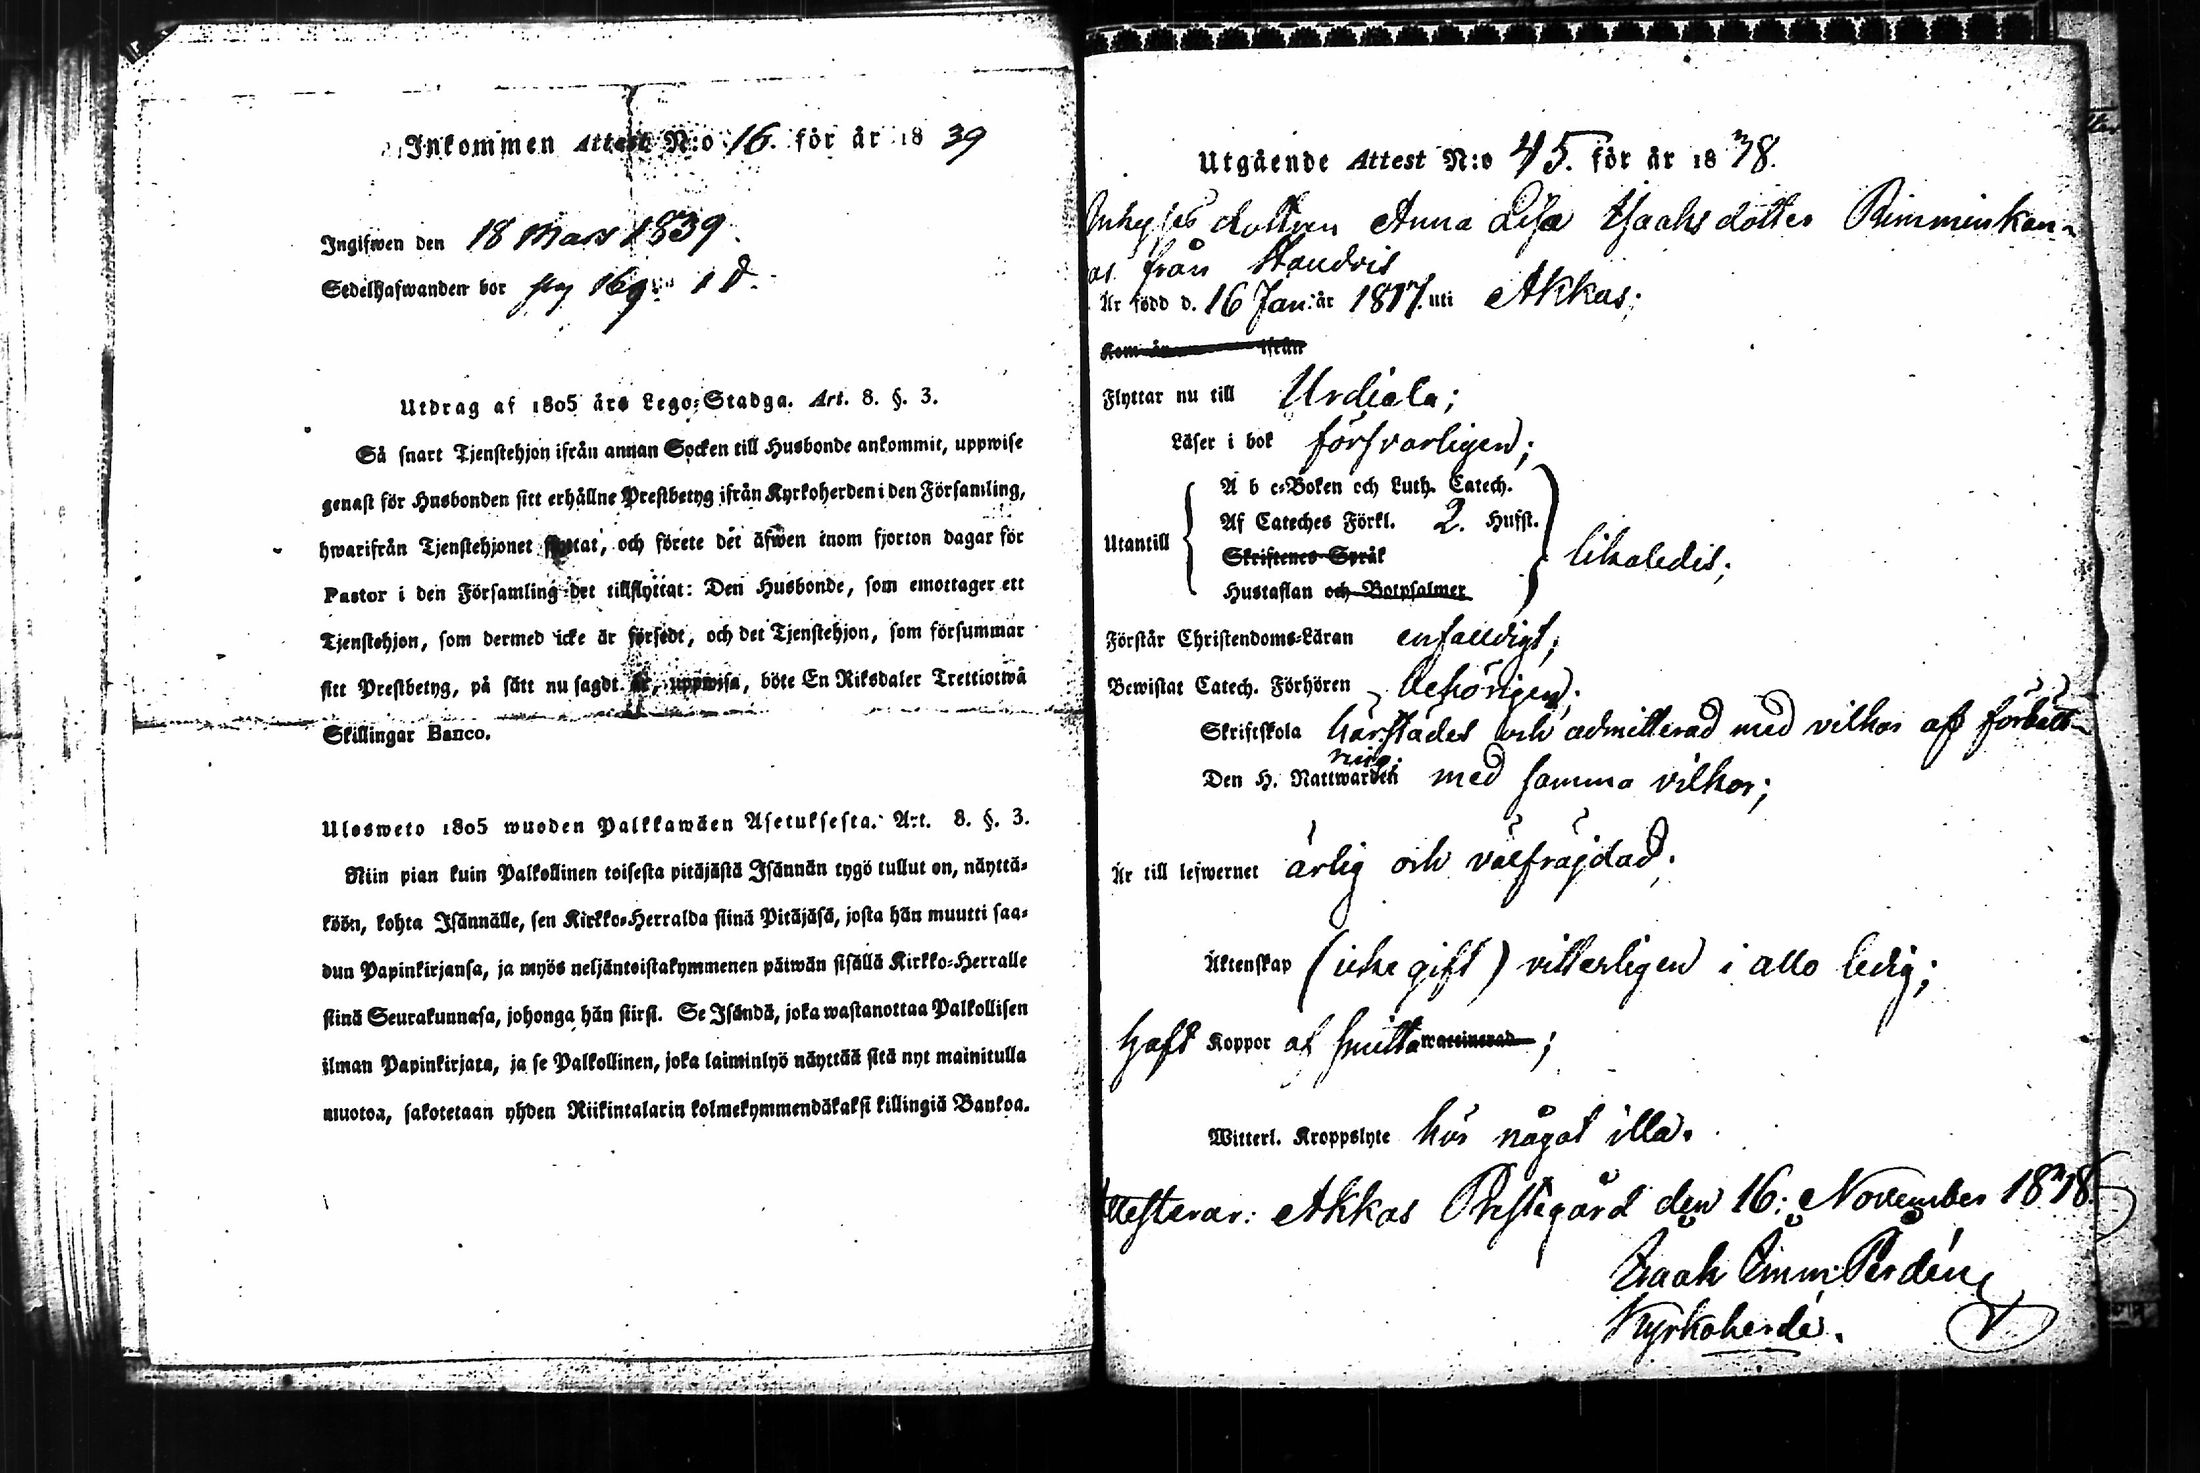 Inkommen Attest N:o 16. för år 1839
Ingifwen den 18 Mars 1839.
Sedelhafwanden bor pag 169 1 d.
Utdrag af 1805 års Lego-Stadga. Art. 8. §. 3.
Så snart Tjenstehjon ifrån annan Socken till Husbonde ankommit, uppwise
genast för Husbonden sitt erhållne Prestbetyg ifrån Kyrkoherden i den Församling,
hwarifrån Tjenstehjonet flyttat, och förete det äfwen inom fjorton dagar för
Pastor i den Församling det tillflyttat: Den Husbonde, som emottager ett
Tjenstehjon, som dermed icke är försedt, och det Tjenstehjon, som försummar
sitt Prestbetyg, på sätt nu sagdt är, uppwisa, böte En Riksdaler Trettiotwå
Skillingar Banco.
Ulosweto 1805 wuoden Palkkawäen Asetuksesta. Art. 8. §. 3.
Niin pian kuin Palkollinen toisesta pitäjästä Isännän tygö tullut on, näyttä-
köön, kohta Isännälle, sen Kirkko-Herralda siinä Pitäjäsä, josta hän muutti saa-
dun Papinkirjansa, ja myös neljäntoistakymmenen päiwän sisällä Kirkko-Herralle
siinä Seurakunnasa, johonga hän siirsi. Se Isändä, joka wastanottaa Palkollisen
ilman Papinkirjata, ja se Palkollinen, joka laiminlyö näyttää sitä nyt mainitulla
muotoa, sakotetaan yhden Riikintalarin kolmekymmendäkaksi killingiä Bankoa.
Utgående Attest N:o 45. för år 1838.
Inhyses dottren Anna Lisa Isaaks dotter Rimminkan-
as från Handois
Är född d. 16 Jan: år 1817. uti Akkas;
Kom år ifrån
Flyttar nu till Urdiala;
Läser i bok försvarligen;
A b c-Boken och Luth. Catech.
Af Cateches Förkl. 2. Hufst.
Utantill
Skriftenes Språk
likaledis;
Hustaflan och Botpsalmer
Förstår Christendoms-Läran enfaldigt;
Bewistat Catech. Förhören behörigen;
Skriftskola härstädes och admitterad med vilkor af förbätt-
ring.
Den H. Nattwarden med samma vilkor;
Är till lefwernet ärlig och välfräjdad;
Äktenskap (icke gift) vitterligen i allo ledig;
haft Koppor af smitta waccinerad;
Witterl. Kroppslyte hör något illa.
Attesterar: Akkas Prestegård den 16: November 1838.
Isaak Emm: Perdén
Kyrkoherde.